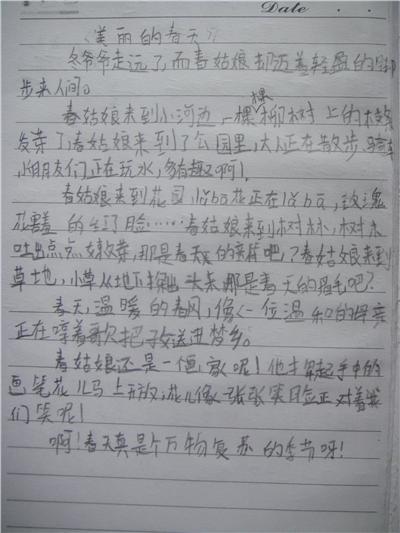 Date
《美丽的春天》
冬爷爷走远了,而春姑娘却迈着轻盈的脚
步来人间。
春姑娘来到小河边,一棵棵柳树上的枝
发芽了,春姑娘来到了公园里,大人正在散步,
小朋友们正在玩水,多有趣啊!
春姑娘来到花园,小lǎba花正在lǎba,玫瑰
花羞的红了脸……春姑娘来到树林,树木
吐出点点嫩芽,那是春天的音符吧?春姑娘来到
草地,小草从地下探出头来,那是春天的眉毛吧?
春天,温暖的春风,像一位温和的母亲
正在哼着歌把孩子送进梦乡。
春姑娘还是一个画家呢!他才拿起手中的
画笔花儿马上开放,花儿像一张张笑脸正对着我
们笑呢!
啊!春天真是个万物复苏的季节呀!